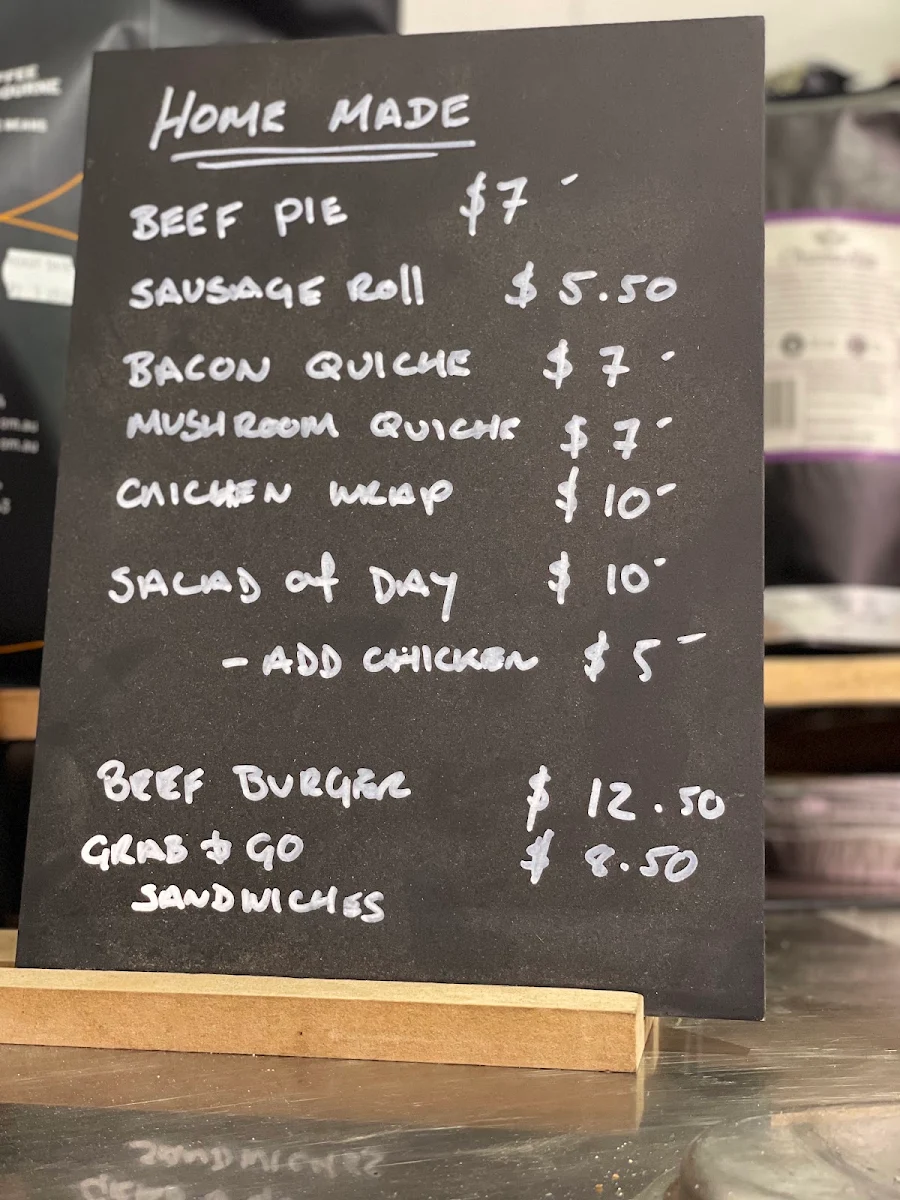 HOME MADE
BEEF PIE $7-
SAUSAGE Roll $5.50
BACON QUICHE $7-
MUSHROOM QUICHE $7-
CHICKEN WRAP $10-
SALAD of DAY $10-
- ADD CHICKEN $5-
BEEF BURGER $12.50
GRAB & GO $8.50
SANDWICHES